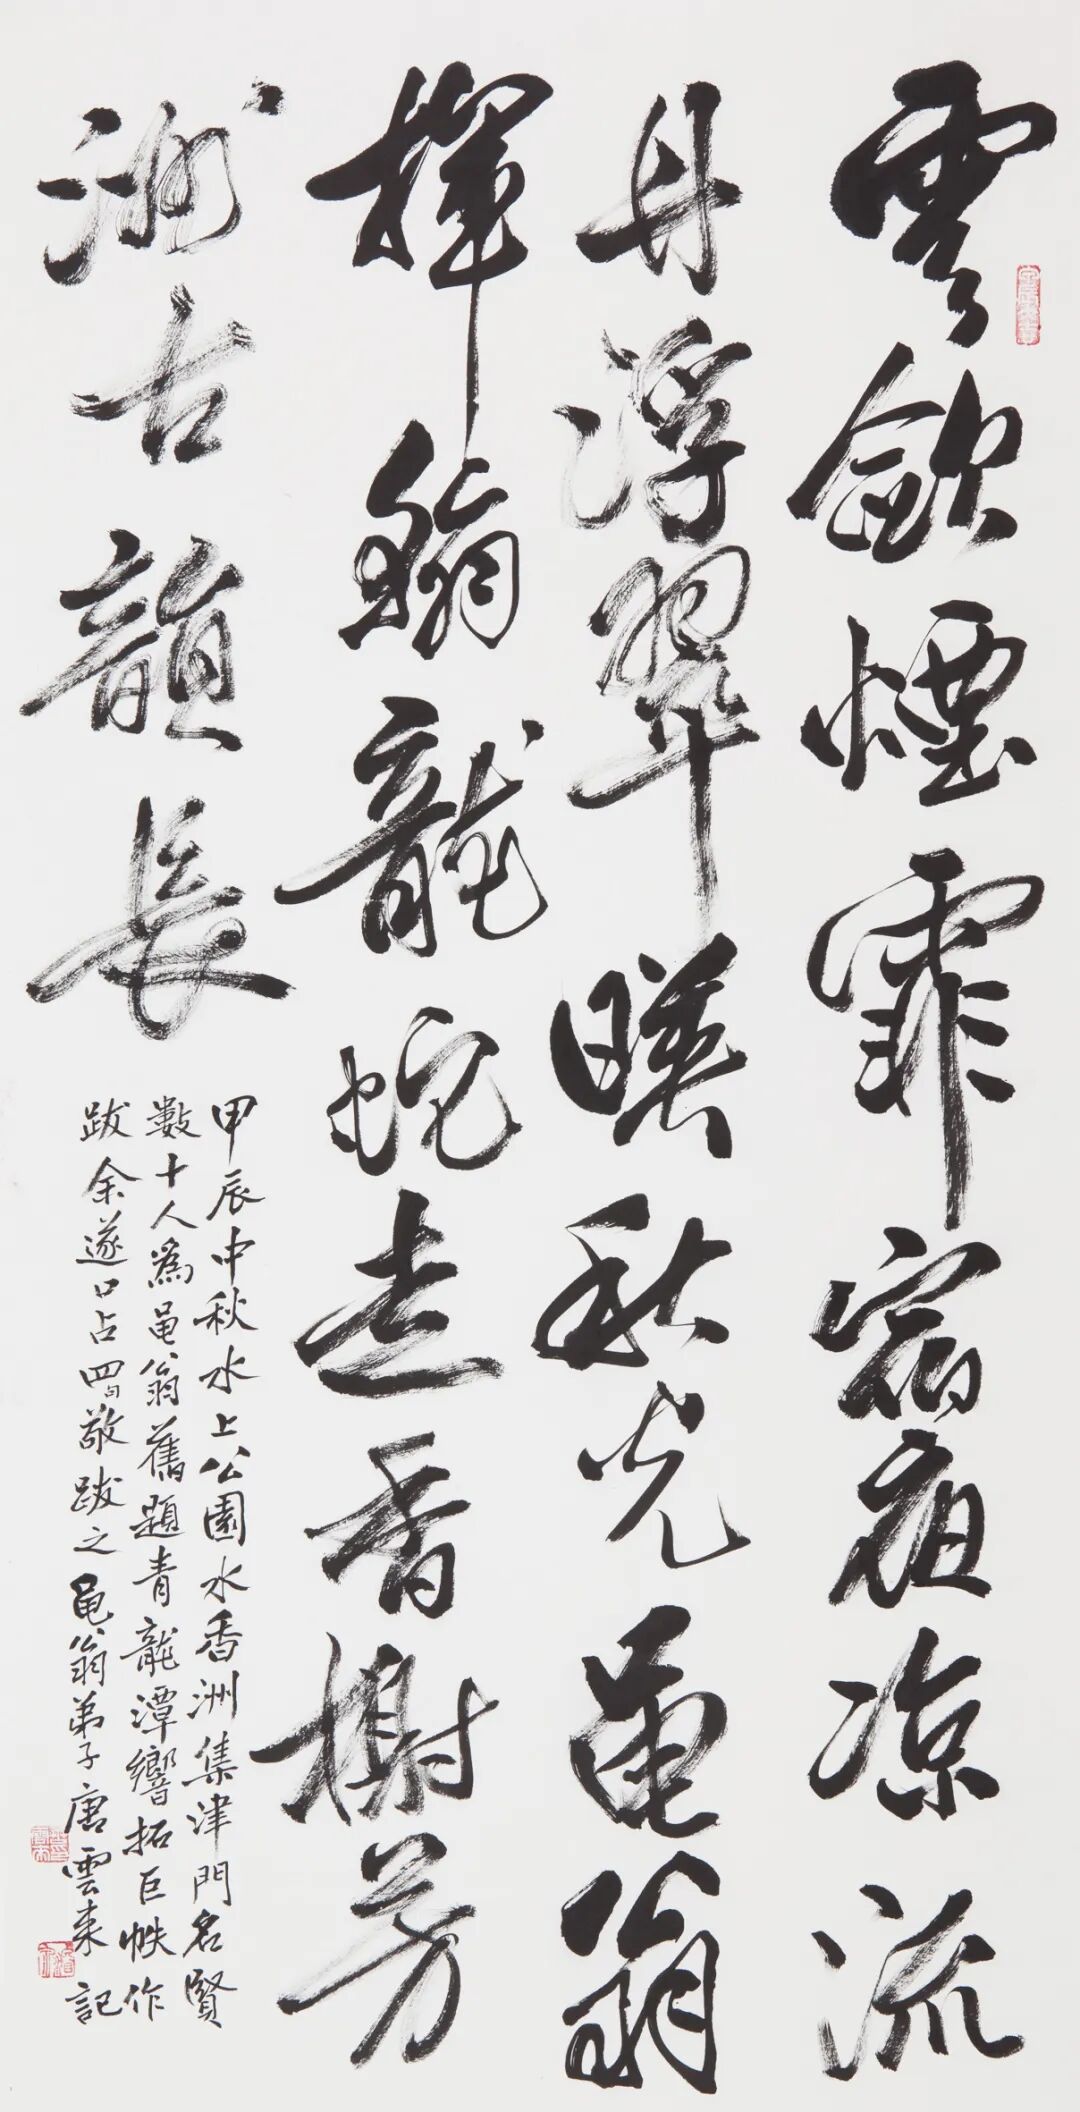 雲斂煙霏宿夜涼流
丹浮翠暎秋光黽翁
揮翰龍蛇走香榭芳
洲古韻長
甲辰中秋水上公園水香洲集津門名賢
數十人為黽翁舊題青龍潭響拓巨帙作
跋余遂口占四句敬跋之黽翁弟子唐雲來記